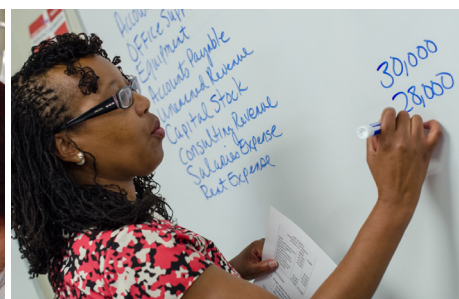 Office Supp
Equipment
Accounts Payable
Unearned Revenue
Capital Stock
Consulting Revenue
Salaries Expense
Rent Expense
30,000
28,000